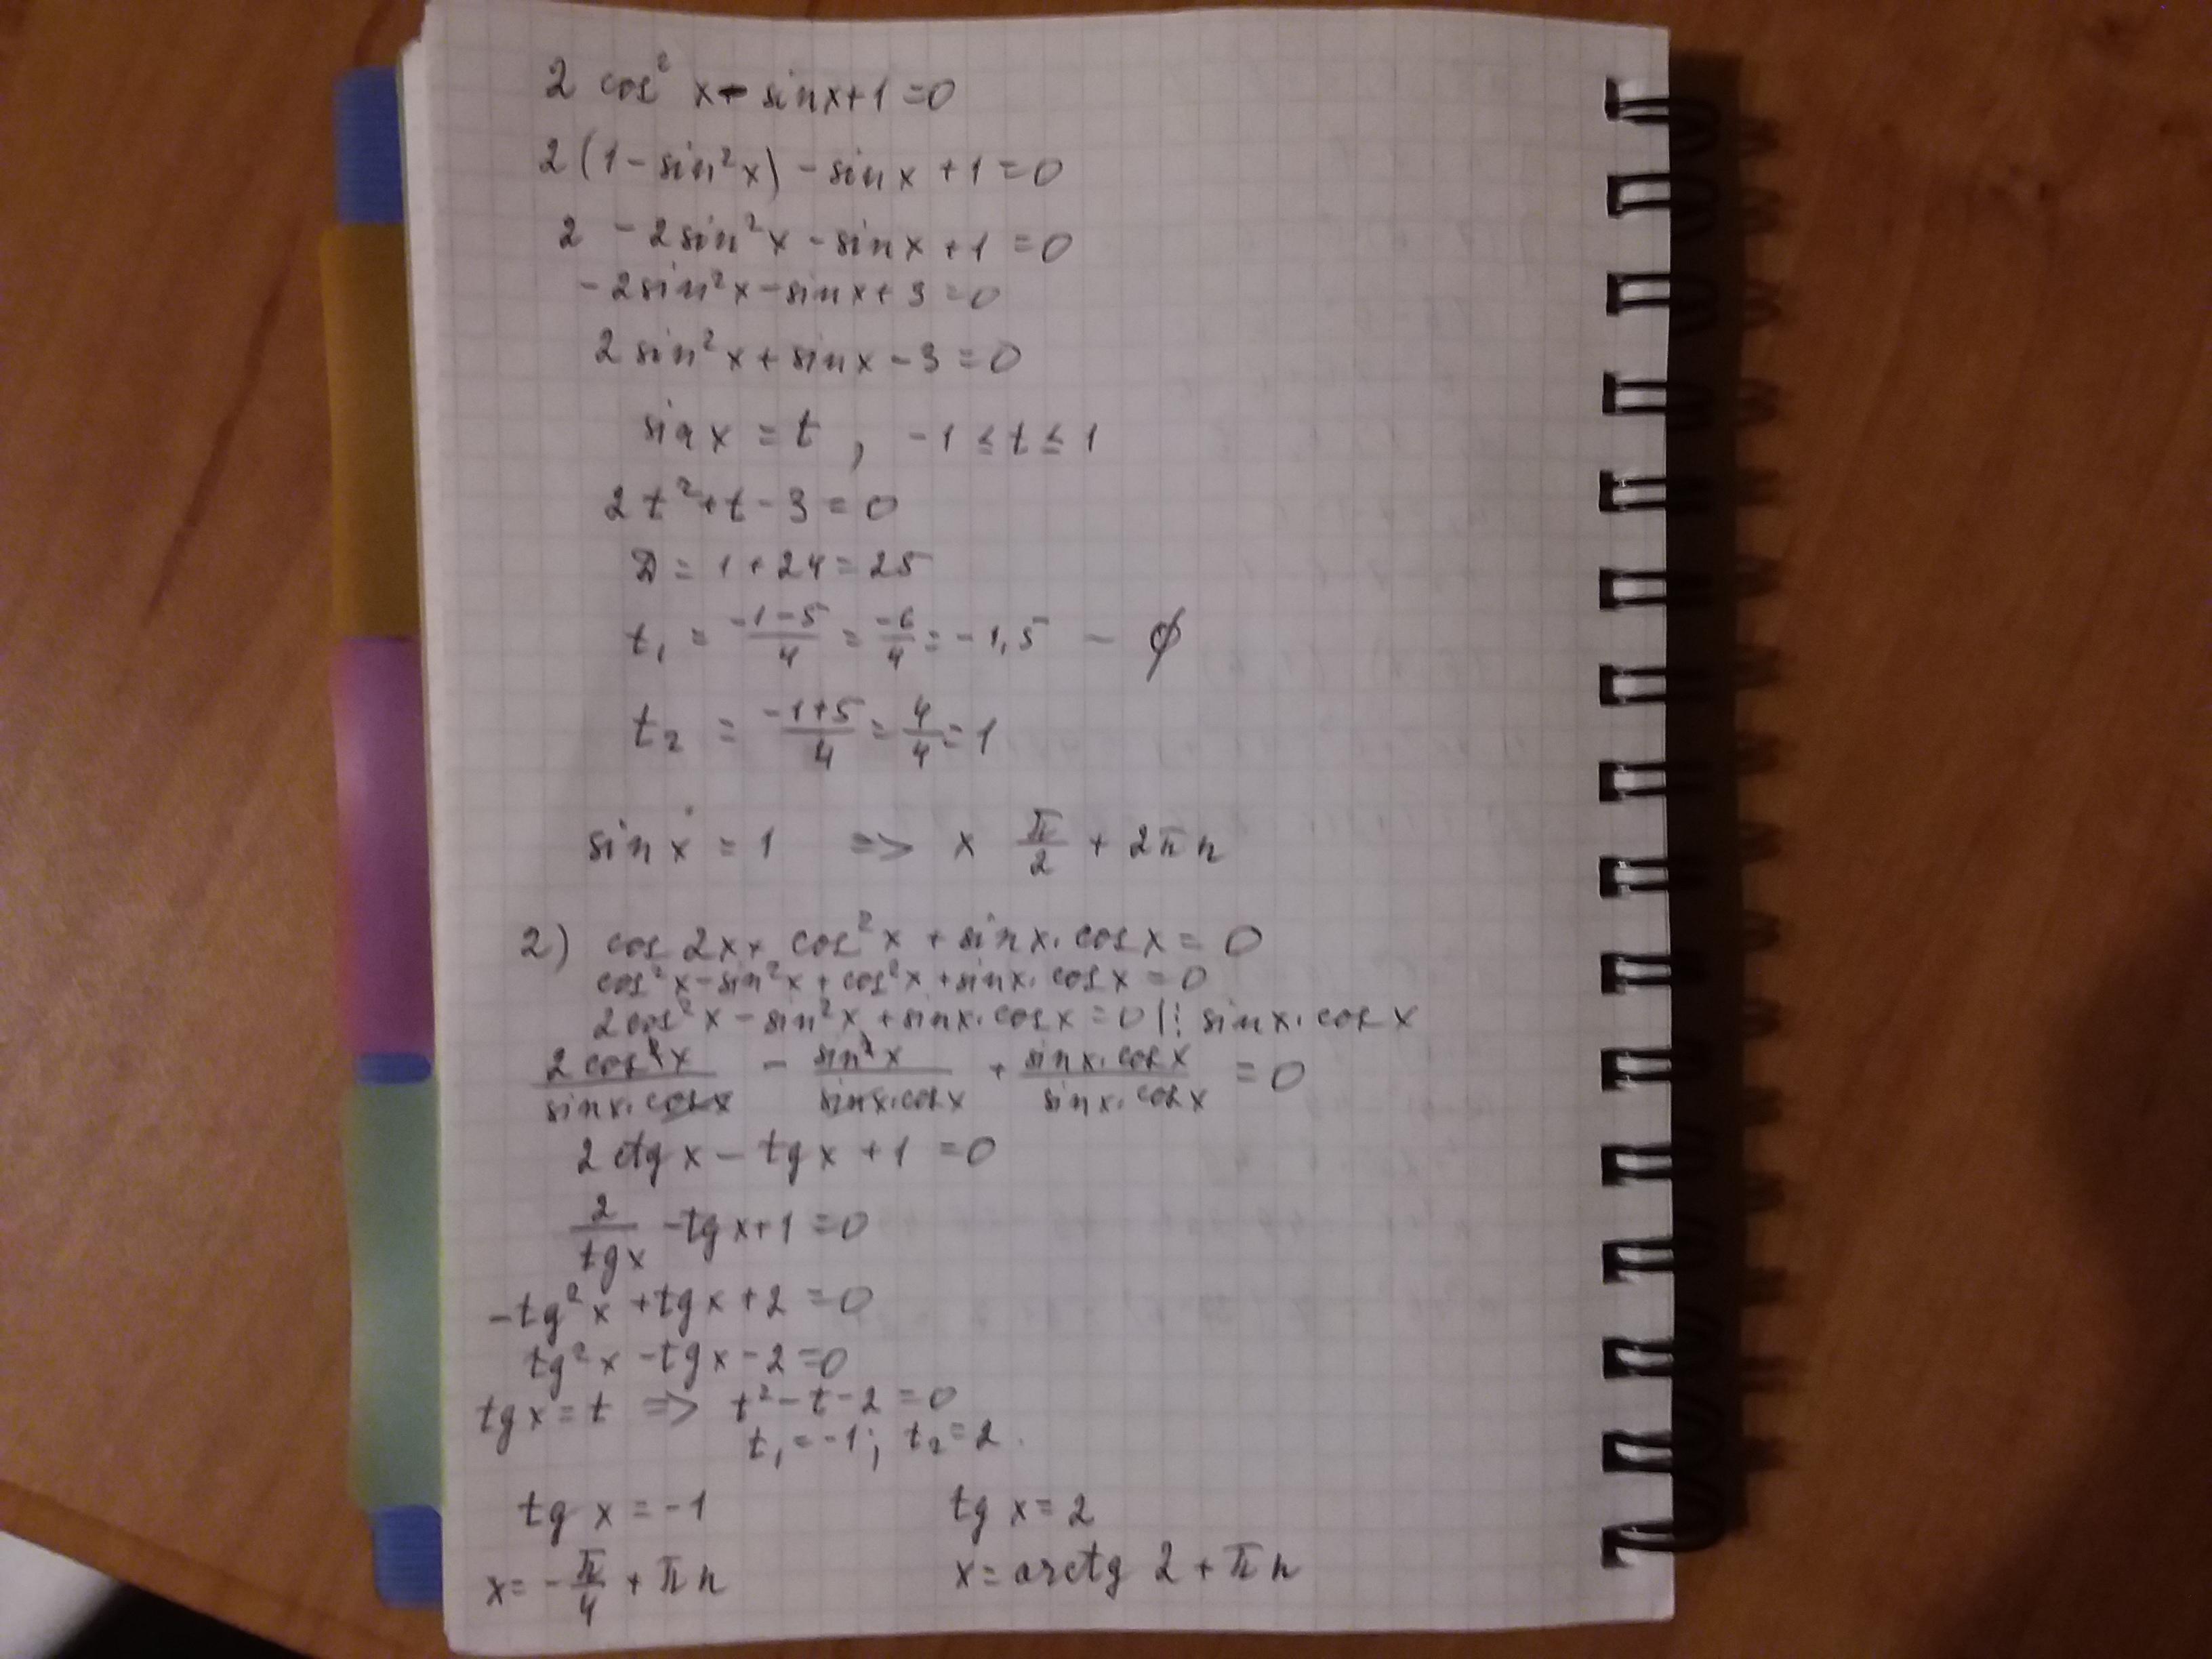 2 cos² x - sinx+1=0
2(1-sin²x) - sinx +1=0
2 -2sin²x - sinx +1 =0
-2sin²x-sinx+3=0
2sin²x+sinx-3=0
sinx = t, -1≤t≤1
2t²+t-3=0
D=1+24=25
t₁ = \frac{-1-5}{4} = \frac{-6}{4} = -1,5 - ∅
t₂ = \frac{-1+5}{4} = \frac{4}{4} = 1
sin x = 1 => x \frac{π}{2} + 2πn
2) cos 2x + cos²x + sinx·cosx = 0
cos²x-sin²x+cos²x+sinx·cosx=0
2cos²x-sin²x+sinx·cosx=0 |: sinx·cosx
\frac{2cos²x}{sinx·cosx} - \frac{sin²x}{sinx·cosx} + \frac{sinx·cosx}{sinx·cosx} = 0
2ctgx-tgx+1=0
\frac{2}{tgx} -tgx+1=0
-tg²x+tgx+2=0
tg²x-tgx-2=0
tgx=t => t²-t-2=0
t₁=-1; t₂=2.
tg x=-1 tg x=2
x=-\frac{π}{4} + πn x=arctg 2+πn